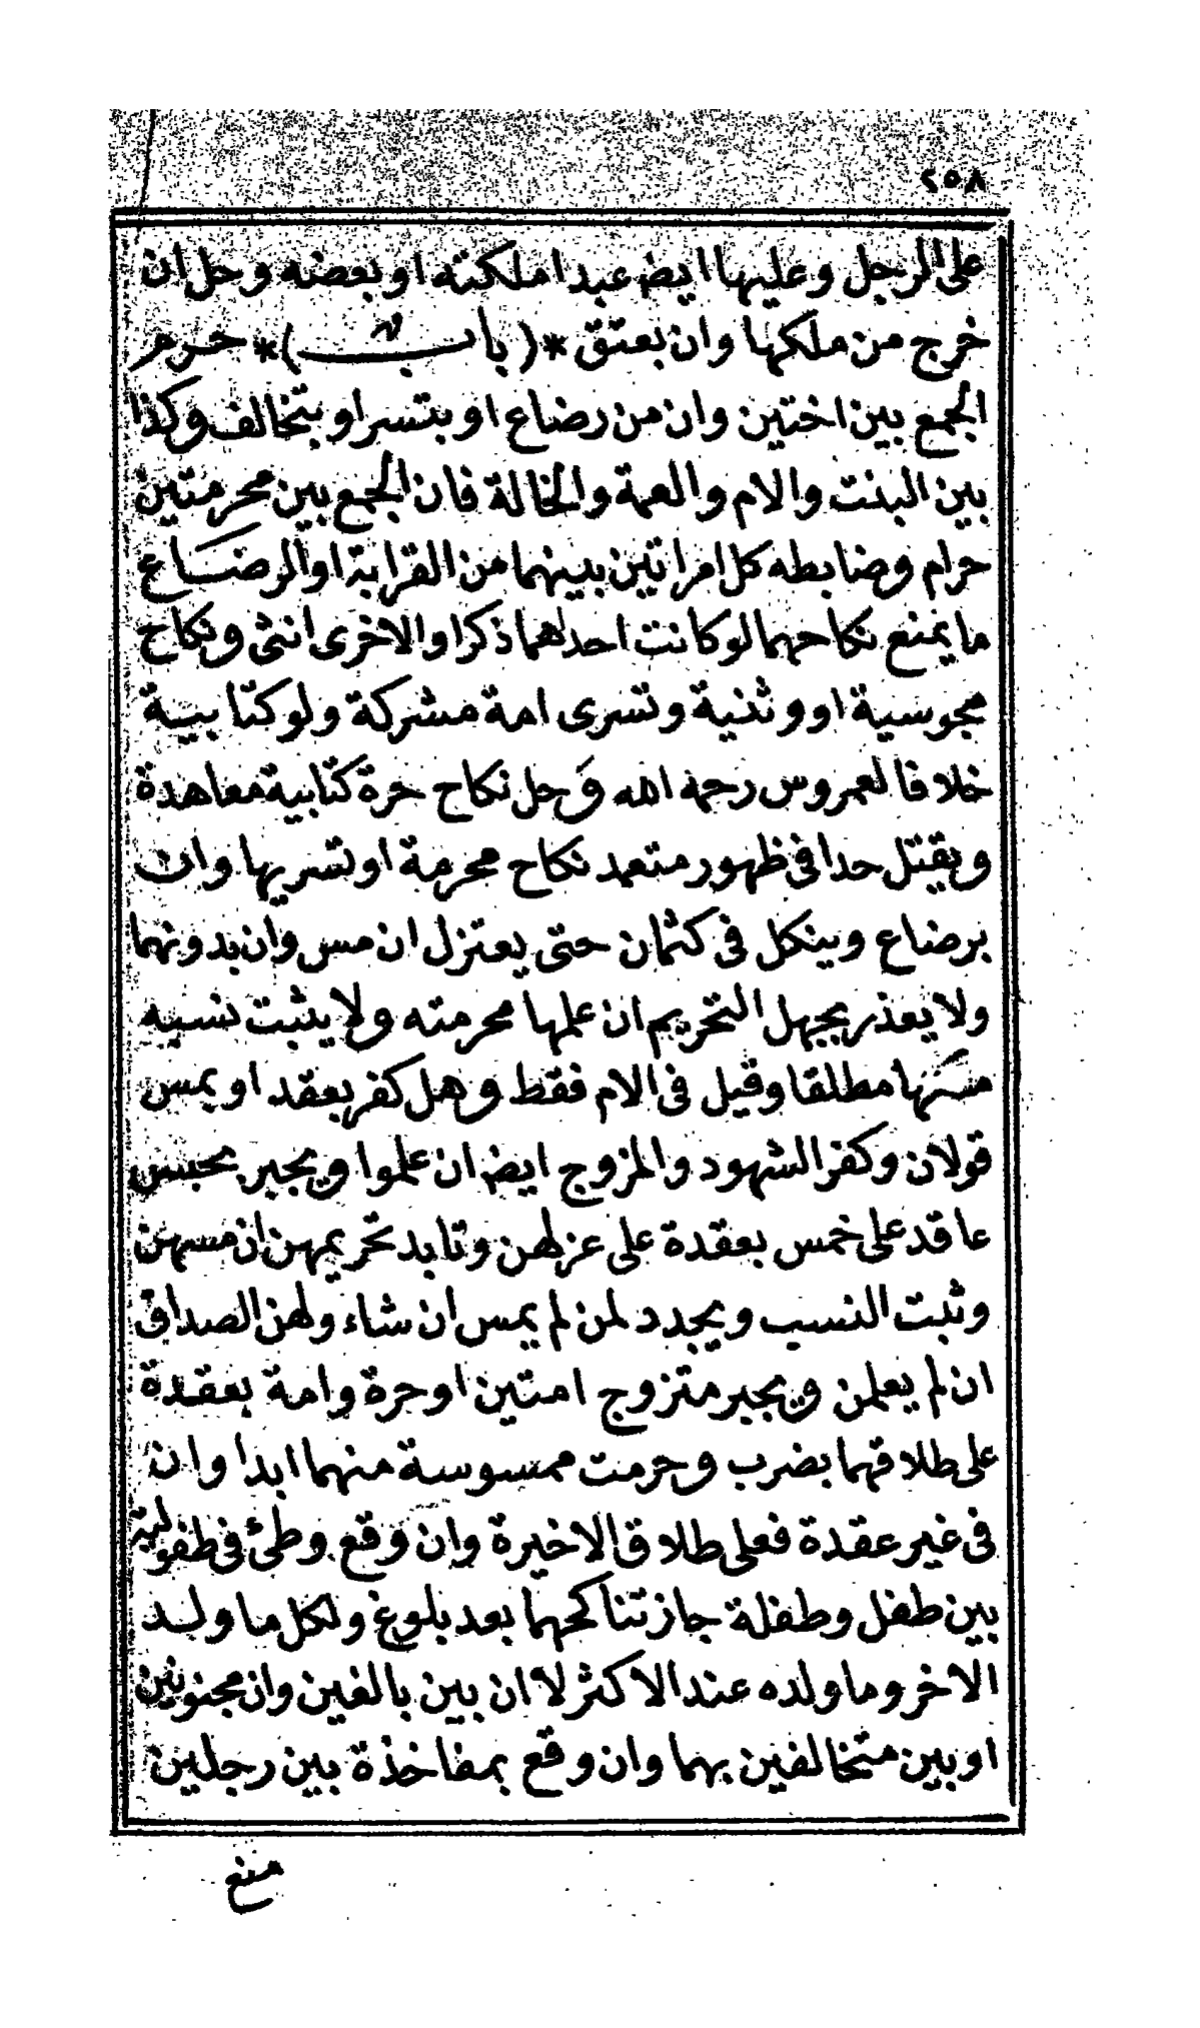 ٢٥٨
على الرجل وعليها ايض عبدا ملكته او بعضه وحل ان
خرج من ملكها وان بعتق *( باب )* حرم
الجمع بين اختين وان من رضاع او بتسر او بتخالف وكذا
بين البنت والام والعمة والخالة فان الجمع بين محرمتين
حرام وضابطه كل امراتين بينهما من القرابة او الرضاع
ما يمنع نكاحهما لو كانت احداهما ذكرا والاخرى انثى ونكاح
مجوسية او وثنية وتسرى امة مشركة ولو كتابية
خلافا لعمروس رحمه الله وحل نكاح حرة كتابية معاهدة
ويقتل حدا في ظهور متعمد نكاح محرمة او تسريها وان
برضاع وينكل في كتمان حتى يعتزل ان مس وان بدونهما
ولا يعذر بجهل التحريم ان علمها محرمته ولا يثبت نسبه
منها مطلقا وقيل في الام فقط وهل كفر بعقد او بمس
قولان وكفر الشهود والمزوج ايض ان علموا ويجبر بحبس
عاقد على خمس بعقدة على عزلهن وتابد تحريمهن ان مسهن
وثبت النسب ويجدد لمن لم يمس ان شاء ولهن الصداق
ان لم يعلمن ويجبر متزوج امتين او حرة وامة بعقدة
على طلاقهما بضرب وحرمت ممسوسة منهما ابدا وان
في غير عقدة فعلى طلاق الاخيرة وان وقع وطئ في طفولية
بين طفل وطفلة جاز تناكحهما بعد بلوغ ولكل ما ولد
الاخر وما ولده عند الاكثر لا ان بين بالغين وان مجنونين
او بين متخالفين بهما وان وقع بمفاخذة بين رجلين
منع